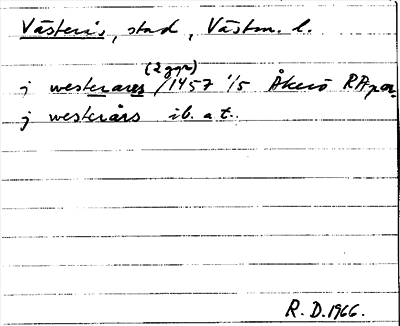 Västerås, stad, Västm. l.
(2 ggr)
j westerares /1457 1/5 Åkerö RA pap.
j westerårs ib. a t..
R. D. 1966.